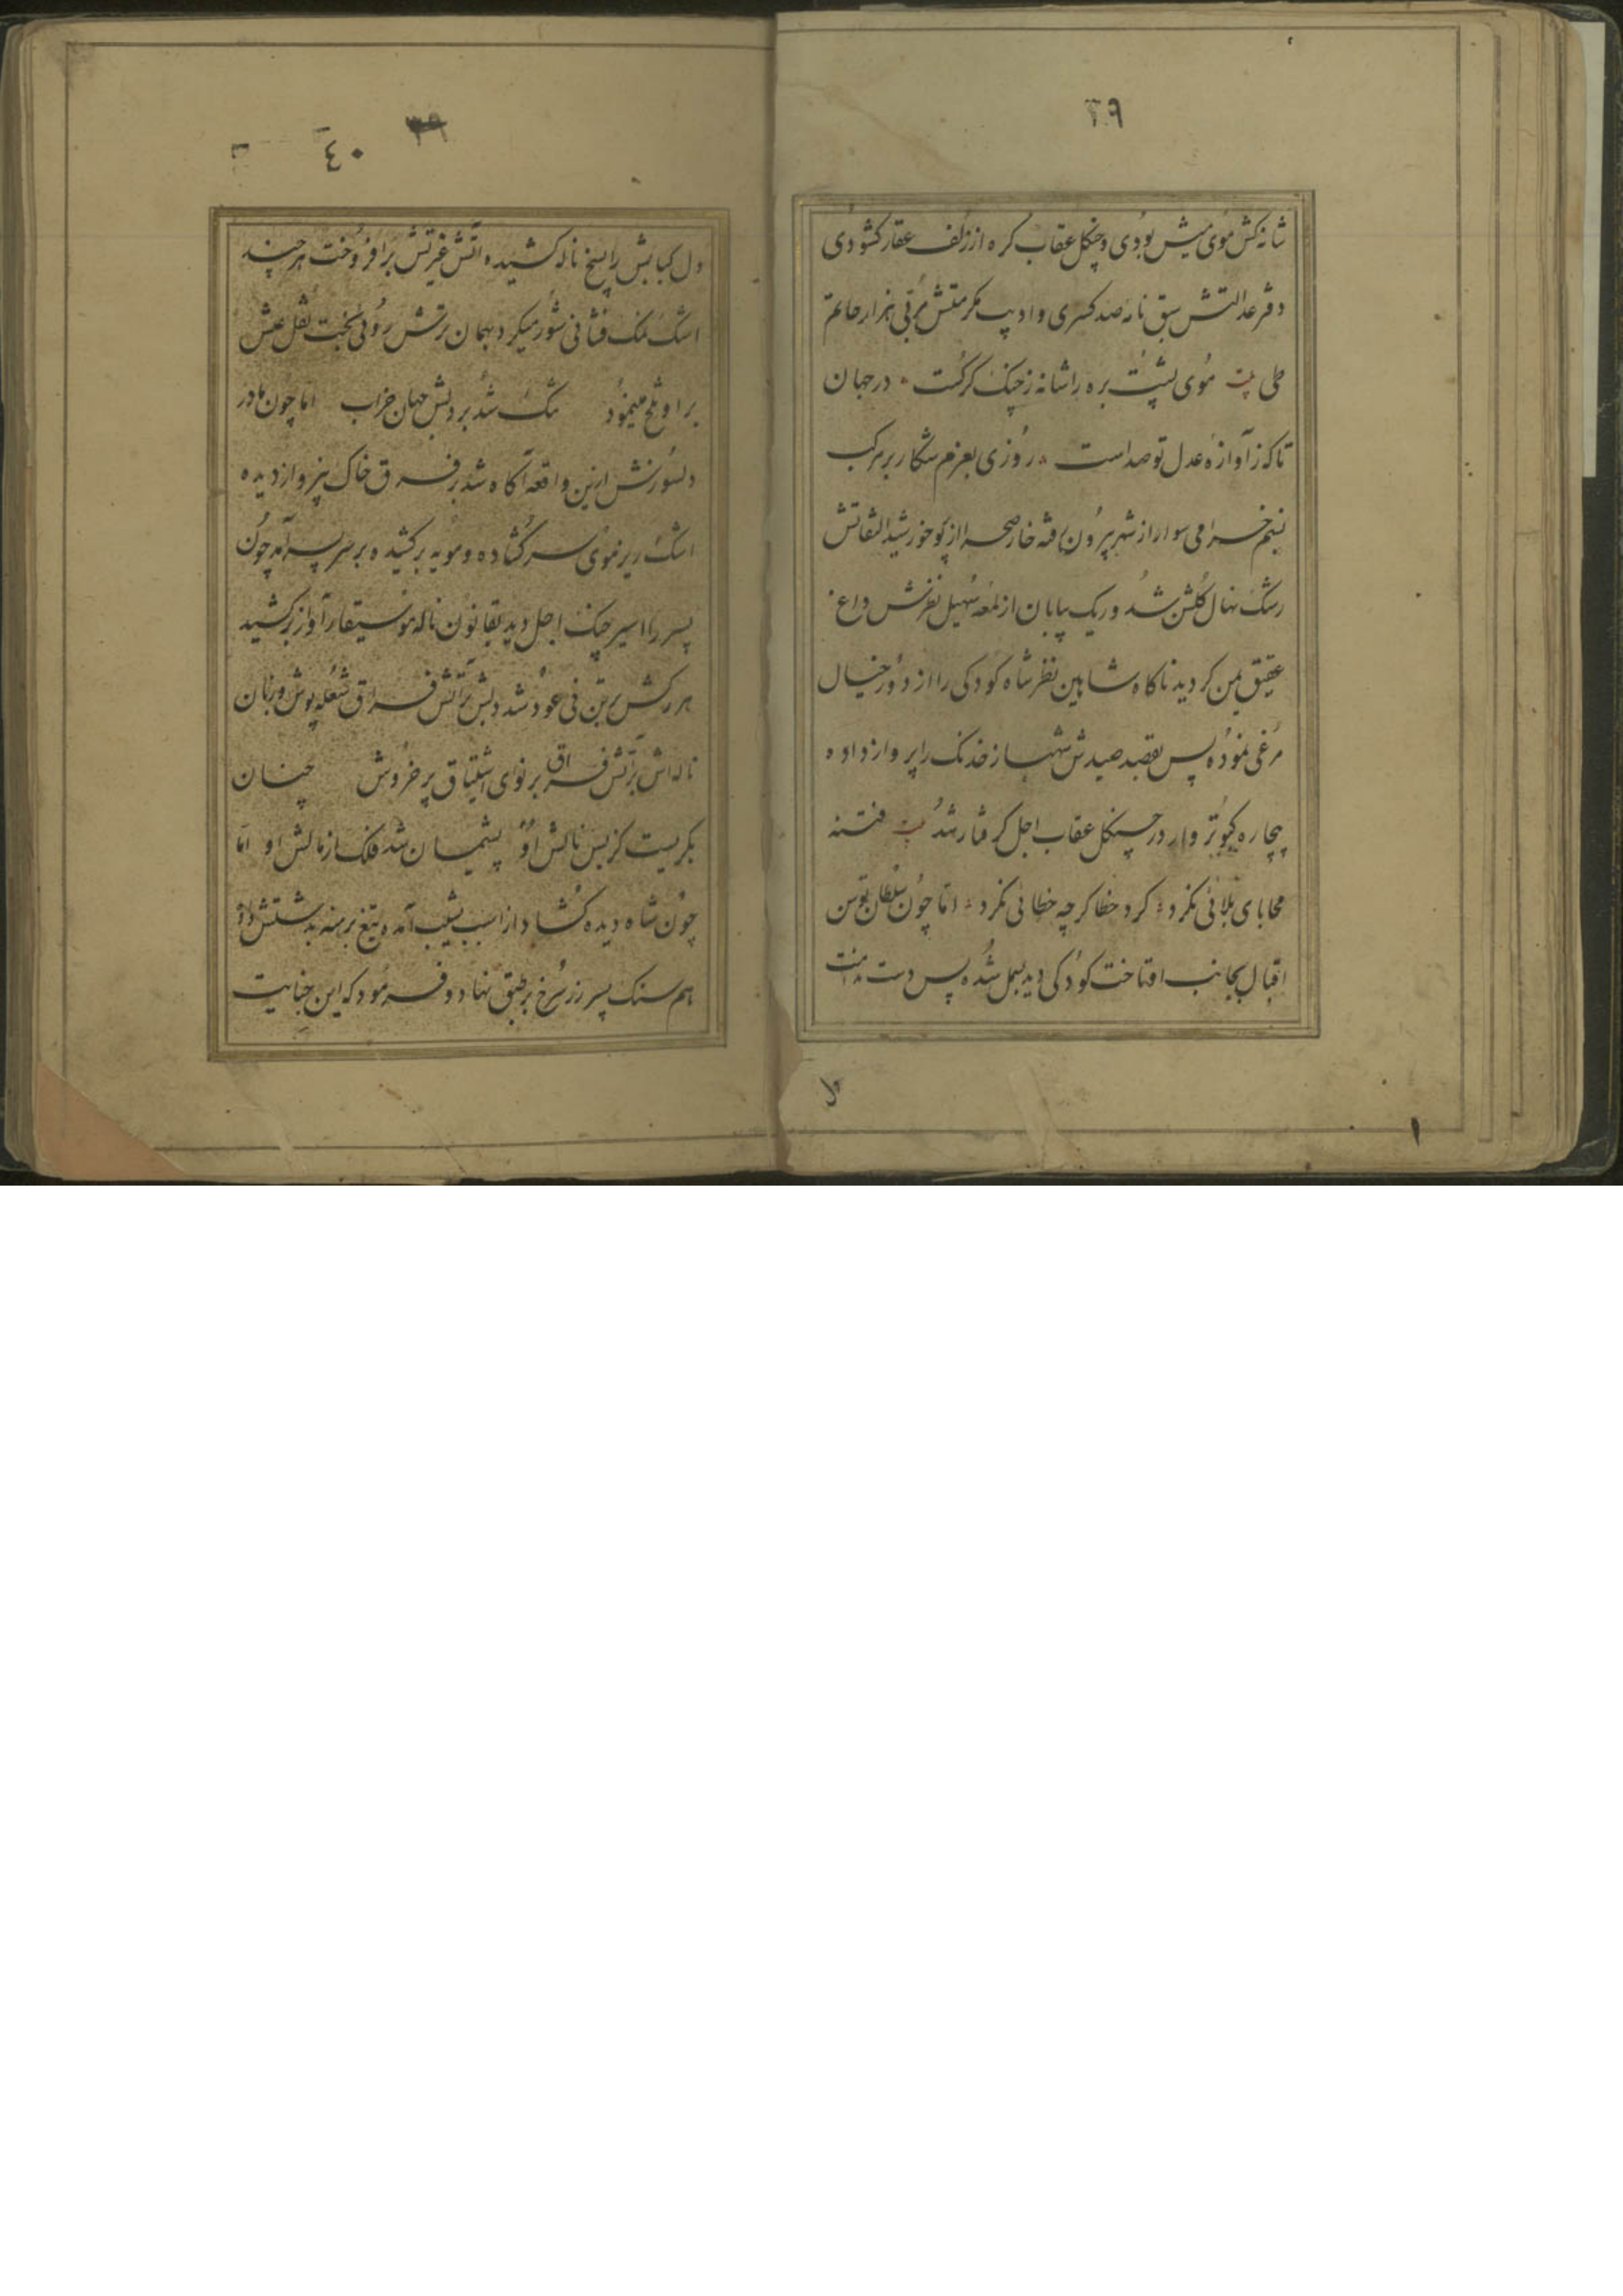 ۳۹
شانه کش موی میش بودی و چنکل عقاب کره از زلف عقار کشودی
دفتر عدالتش سبق نامه صد کسری و ادیب مکرمتش مربی هزار حاتم
طی بیت موی پشت بره را شانه ز چنک کرکست در جهان
تا که ز آوازه عدل تو صداست روزی بعزم شکار بر مرکب
خرامی سوار از شهر بیرون رفته خار صحرا از پرتو خورشید التفاتش
رشک نهال کلشن شد و ریک بیابان از لمعه سهیل نظرش داغ
عقیق یمن کردید ناکاه شاهین نظر شاه کودکی را از دور خیال
مرغی نموده پس بقصد صیدش شهباز خدنک را پرواز داده
بیچاره کبوتر وار در چنکل عقاب اجل کرفتار شد بیت فتنه
محابای بلائی نکرد کرد خطا کرچه خطائی نکرد اما چون سلطان توسن
اقبال بجانب او تاخت کودکی دید بسمل شده پس دست
دل
۳۹
۴۰
دل کبابش را سیخ ناله کشیده آتش غیرتش برافروخت هر چند
اشک نمک فشانی شور میکرد بهمان ترش روئی بخت نقل عیش
بر او تلخ مینمود تنک شد بر دلش جهان خراب اما چون مادر
دلسوزش ازین واقعه آکاه شد بر فرق خاک بیز و از دیده
اشک ریز موی سر کشاده و مویه برکشیده بر سر پسر آمد چون
پسر را اسیر چنک اجل دید بقانون ناله موسیقار آواز برکشید
هر رکش بر تن نی عود شد دلش بر آتش فراق شعله پوش و زبان
ناله اش بر آتش فراق بر نوای اشتیاق پر خروش چنان
بکریست کز بس نالش او پشیمان شد فلک از مالش او اما
چون شاه دیده کشاد از اسب بشیب آمده تیغ برهنه بدستش داد
هم سنک پسر زر سرخ بر طبق نهاد و فرمود که این جنایت